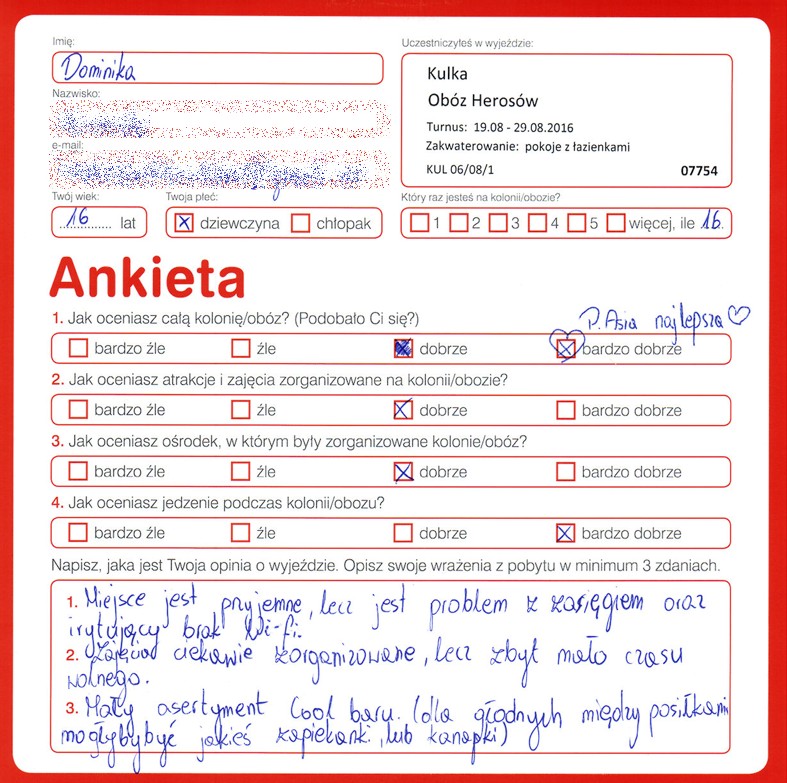 Imię:
Dominika
Nazwisko:
e-mail:
Twój wiek:
16 lat
Twoja płeć:
dziewczyna chłopak
Uczestniczyłeś w wyjeździe:
Kulka
Obóz Herosów
Turnus: 19.08 - 29.08.2016
Zakwaterowanie: pokoje z łazienkami
KUL 06/08/1 07754
Który raz jesteś na kolonii/obozie?
1 2 3 4 5 więcej, ile 16.
Ankieta
1. Jak oceniasz całą kolonię/obóz? (Podobało Ci się?)
P. Asia najlepsza ♡
bardzo źle źle dobrze bardzo dobrze
2. Jak oceniasz atrakcje i zajęcia zorganizowane na kolonii/obozie?
bardzo źle źle dobrze bardzo dobrze
3. Jak oceniasz ośrodek, w którym były zorganizowane kolonie/obóz?
bardzo źle źle dobrze bardzo dobrze
4. Jak oceniasz jedzenie podczas kolonii/obozu?
bardzo źle źle dobrze bardzo dobrze
Napisz, jaka jest Twoja opinia o wyjeździe. Opisz swoje wrażenia z pobytu w minimum 3 zdaniach.
1. Miejsce jest przyjemne, lecz jest problem z zasięgiem oraz
irytujący brak Wi-fi.
2. ciekawie zorganizowane, lecz zbyt mało czasu
wolnego.
3. Mały asertyment Cool baru. (dla głodnych między posiłkami
mogłybybyć jakieś zapiekanki, lub kanapki)